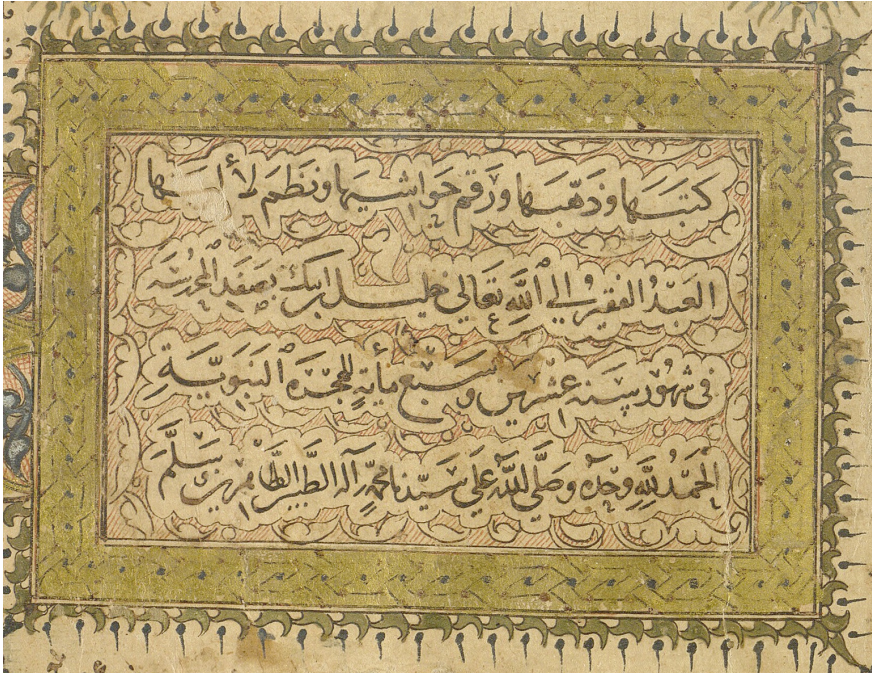 كتبها وذهبها ورقم حواشيها ونظم لآليها
العبد الفقير إلى الله تعالى خليل بن ايبك بصفد المحروسة
في شهور سنة عشرين وسبع مأية للهجرة النبوية
الحمد لله وحده وصلى الله على سيدنا محمد وآله الطيبين الطاهرين وسلم